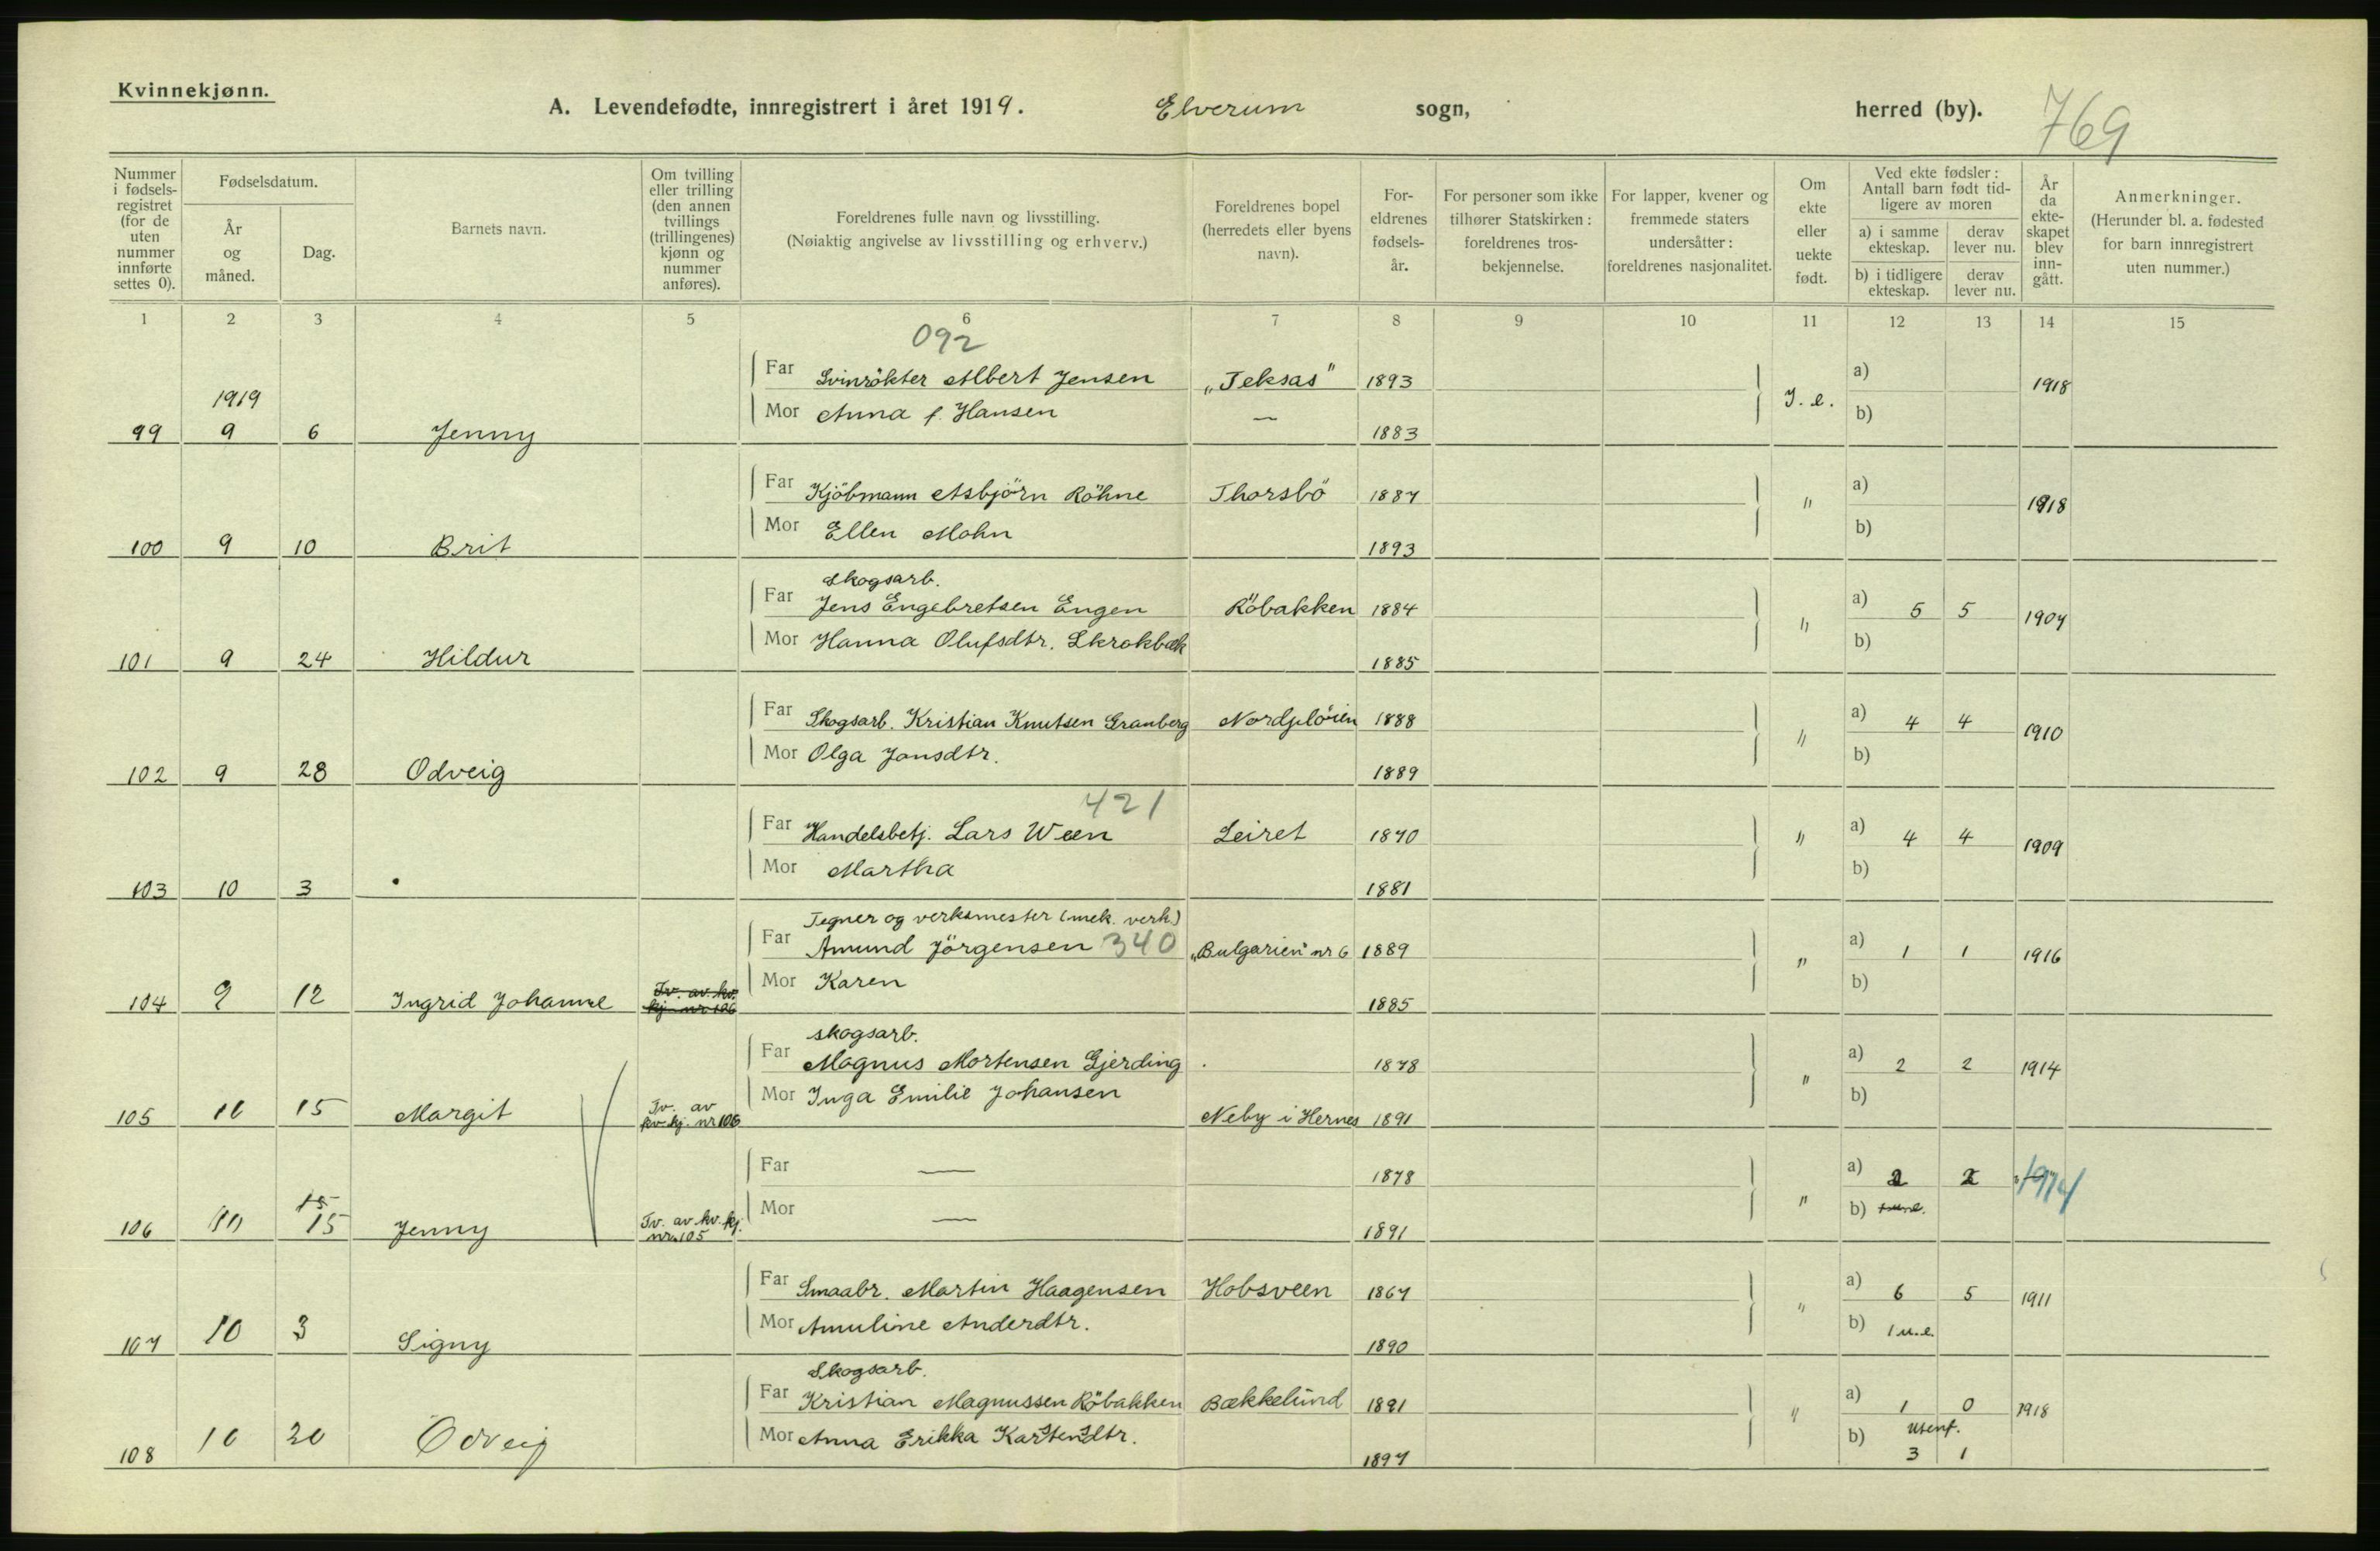 Kvinnekjønn.
A. Levendefødte, innregistrert i året 1919. Elverum sogn, herred (by). 769
Nummer i fødselsregistret (for de uten nummer innførte settes 0).
Fødselsdatum.
År og måned.
Dag.
Barnets navn.
Om tvilling eller trilling (den annen tvillings (trillingenes) kjønn og nummer anføres).
Foreldrenes fulle navn og livsstilling.
(Nøiaktig angivelse av livsstilling og erhverv.)
Foreldrenes bopel (herredets eller byens navn).
Foreldrenes fødselsår.
For personer som ikke tilhører Statskirken: foreldrenes trosbekjennelse.
For lapper, kvener og fremmede staters undersåtter: foreldrenes nasjonalitet.
Om ekte eller uekte født.
Ved ekte fødsler: Antall barn født tidligere av moren
a) i samme ekteskap. derav lever nu.
b) i tidligere ekteskap. derav lever nu.
År da ekteskapet blev inngått.
Anmerkninger.
(Herunder bl. a. fødested for barn innregistrert uten nummer.)
1 2 3 4 5 6 7 8 9 10 11 12 13 14 15
092
Far Svinrökter Albert Jensen „Teksas" 1893 a) 1918
1919
99 9 6 Jenny Mor Anna f. Hansen — 1883 I. e. b)
Far Kjöbmann Asbjörn Röhne Thorsbö 1887 a) 1918
100 9 10 Brit Mor Ellen Mohn 1893 " b)
Skogsarb.
Far Jens Engebretsen Engen Röbakken 1884 a) 5 5 1907
101 9 24 Hildur Mor Hanna Olufsdtr. Skrokbæk 1885 " b)
Far Skogsarb. Kristian Knutsen Granberg 1888 a) 4 4 1910
102 9 28 Odveig Mor Olga Jonsdtr. 1889 " b)
421
Far Handelsbetj. Lars Ween Leiret 1870 " a) 4 4 1909
103 10 3 Mor Martha 1881 b)
Tegner og verksmester (mek. verk.)
Far Amund Jörgensen 340 „Bulgarien" nr 6 1889 a) 1 1 1916
104 9 12 Ingrid Johanne Tv. av kv. kj. nr 106 Mor Karen 1885 " b)
skogsarb.
Far Magnus Mortensen Gjerding 1878 a) 2 2 1914
105 10 15 Margit Tv. av kv. kj. nr 106 Mor Inga Emilie Johansen Neby i Hernes 1891 " b)
Far — 1878 a) 2 2 1914
15
106 10 15 Jenny Tv. av kv. kj. nr. 105 Mor — 1891 " b)
Far Smaabr. Martin Haagensen Hobsveen 1867 a) 6 5 1911
107 10 3 Signy Mor Amuline Anderdtr. 1890 " b) 1 u.e.
Skogsarb.
Far Kristian Magnussen Röbakken Bækkelund 1891 a) 1 0 1918
108 10 20 Odveig Mor Anna Erikka Karstendtr. 1897 " b) utenf. 3 1